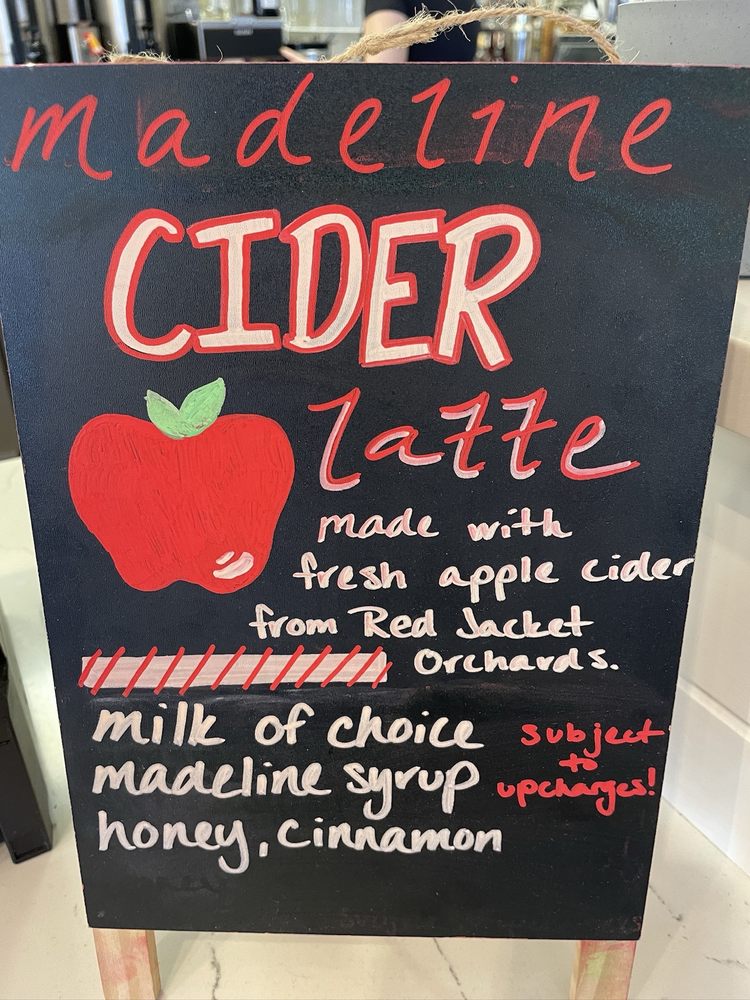 madeline
CIDER
latte
made with
fresh apple cider
from Red Jacket
Orchards.
milk of choice
madeline syrup
honey, cinnamon
subject
to
upcharges!